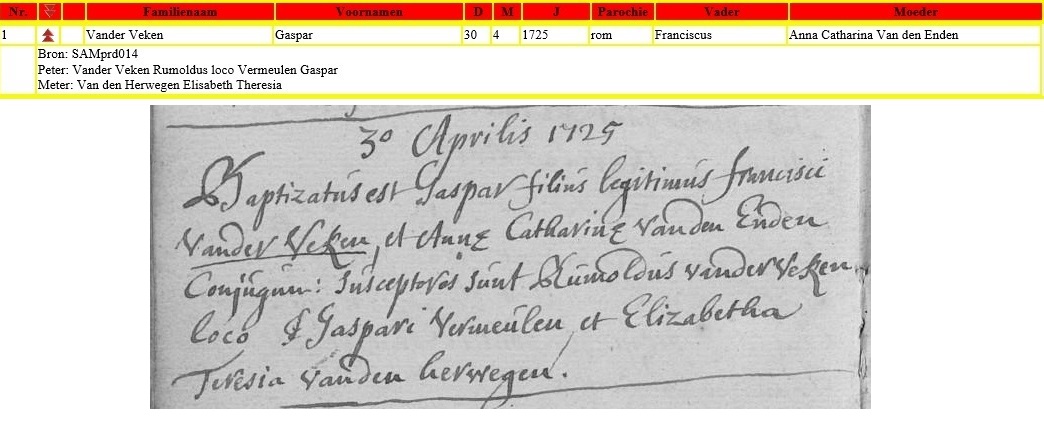 Nr. Familienaam Voornamen D M J Parochie Vader Moeder
1 Vander Veken Gaspar 30 4 1725 rom Franciscus Anna Catharina Van den Enden
Bron: SAMprd014
Peter: Vander Veken Rumoldus loco Vermeulen Gaspar
Meter: Van den Herwegen Elisabeth Theresia
30 Aprilis 1725
Baptizatus est Gaspar filius legitimus francisci
vander Veken, et Annę Catharinę vanden Enden
Conjugum: susceptores sunt Rumoldus vander Veken
loco Gaspari Vermeulen et Elizabetha
Teresia vanden herwegen.